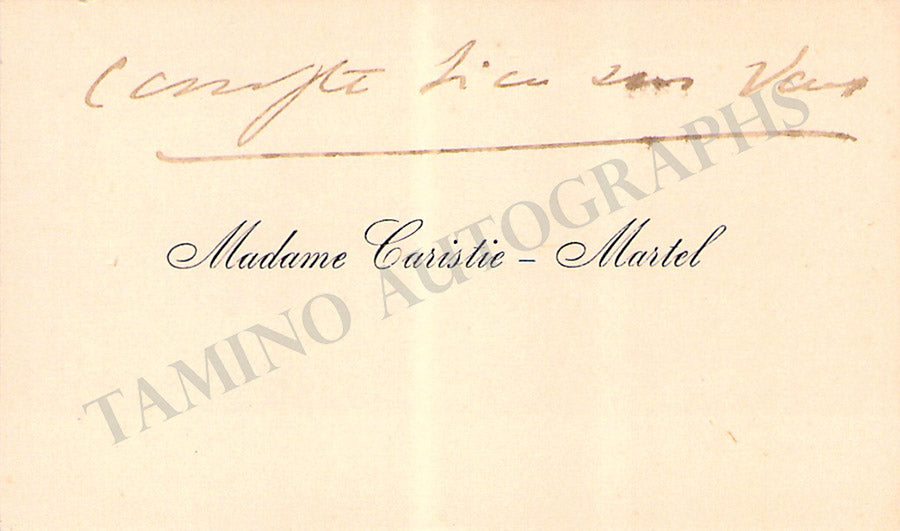 Compte bien sur Vous
Madame Caristie - Martel
TAMINO AUTOGRAPHS